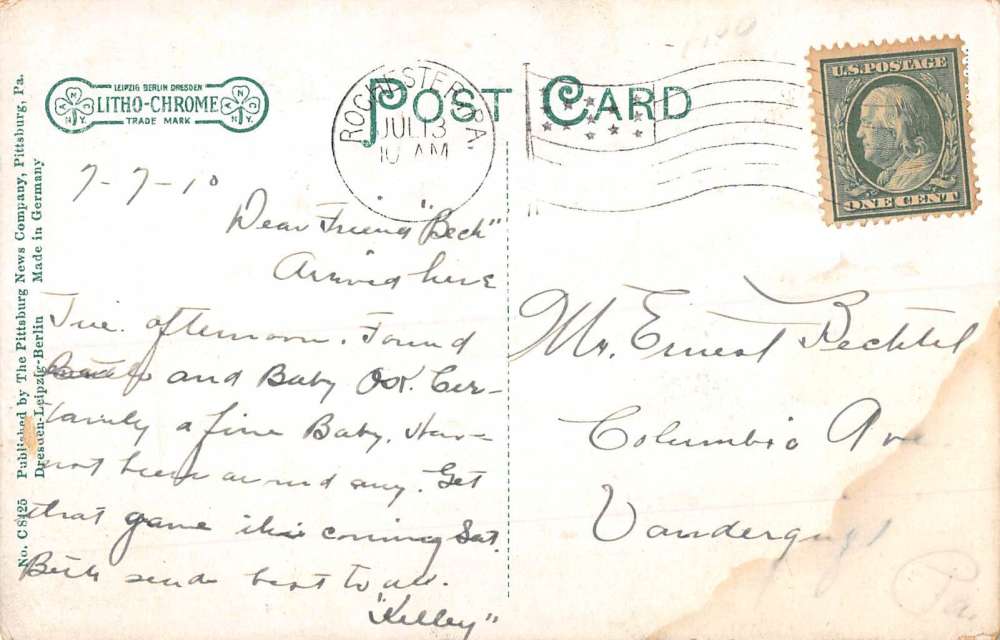 No. C 8425 Published by The Pittsburg News Company, Pittsburg, Pa.
Dresden-Leipzig-Berlin Made in Germany
LEIPZIG BERLIN DRESDEN
LITHO-CHROME
TRADE MARK
POST CARD
ROCHESTER, PA.
JUL 13
10 AM
U.S. POSTAGE
ONE CENT
7-7-10
Dear Friend "Beck"
Arrived here
Tue. afternoon. Found
and Baby O.K. Cer-
tainly a fine Baby. Have
not been around any. Get
that game this coming Sat.
Beth sends best to all.
"Kelley"
Mr. Ernest Bechtel
Columbia Ave
Vandergrift
Pa.